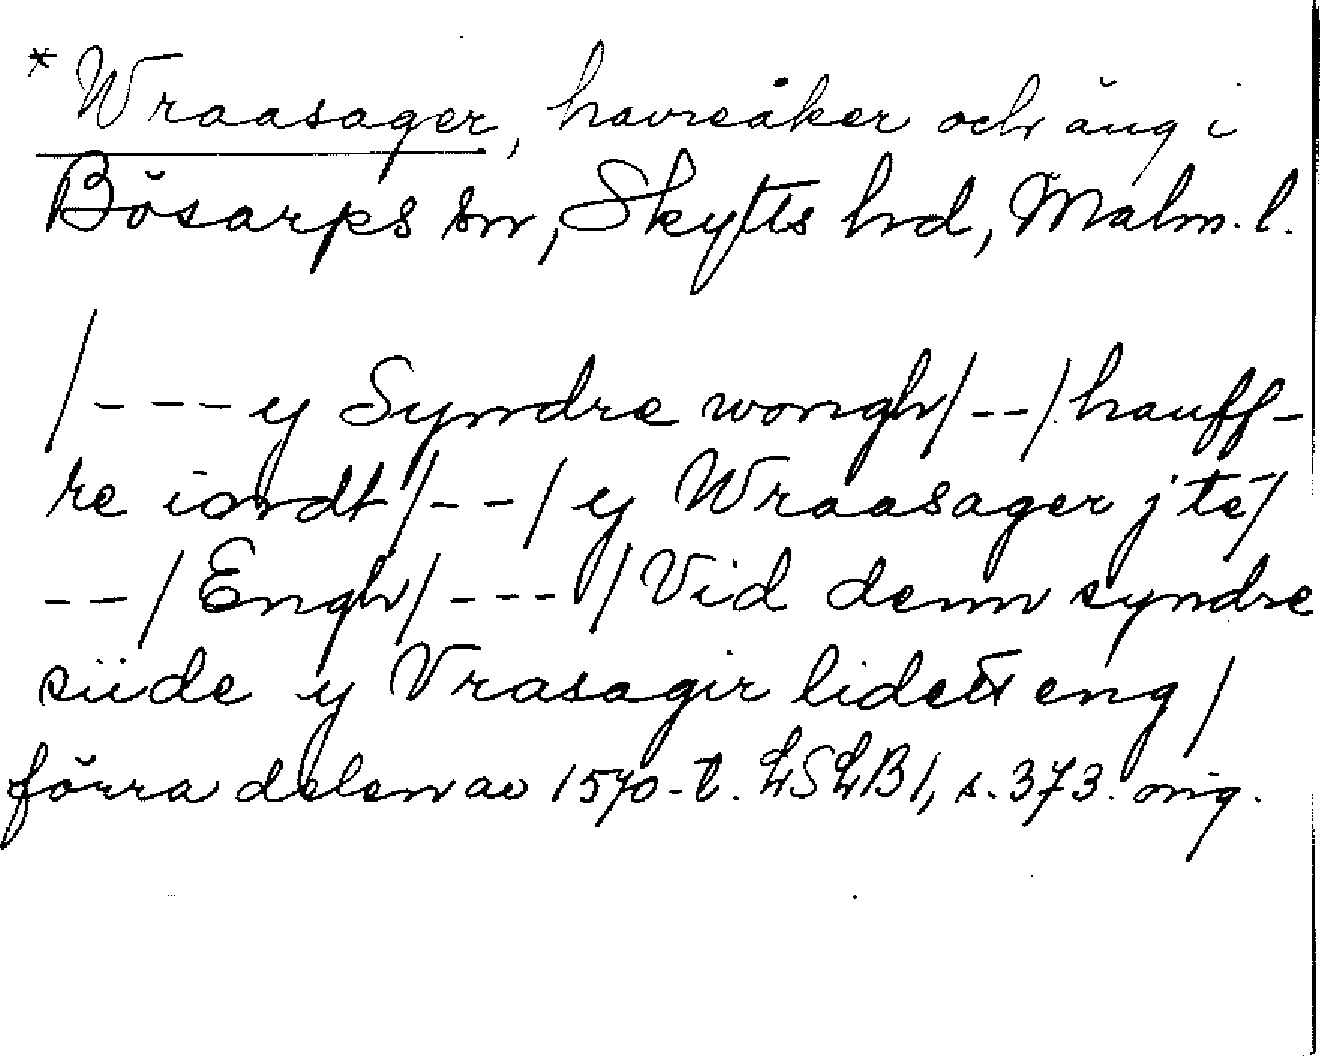 * Wraasager, havreåker och äng i
Bösarps sn, Skytts hd, Malm. l.
/---y Syndre wongh/--/hauff-
re iondt/--/ y Wraasager j te/
--/Engh/---/Vid denn syndre
siide y Vrasagir lidett eng/
förra delen av 1570-t. LSLB1, s. 373. orig.